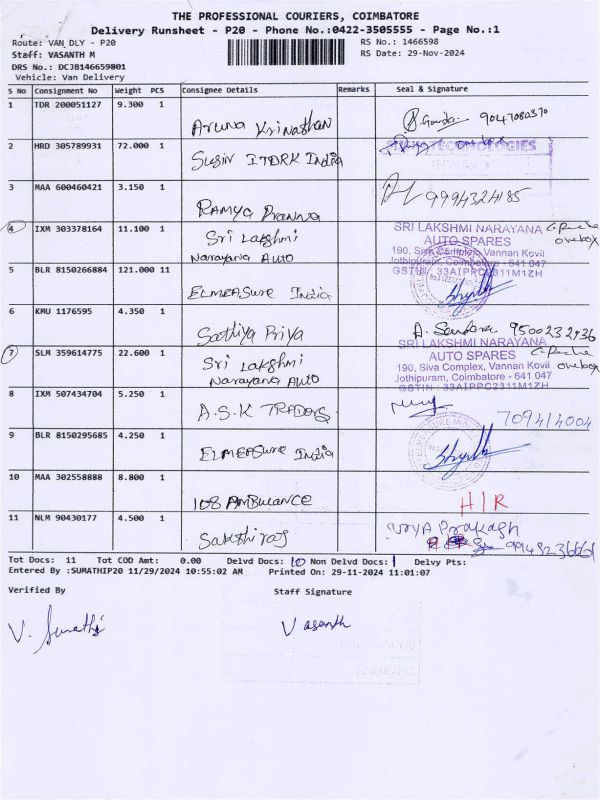 THE PROFESSIONAL COURIERS, COIMBATORE
Delivery Runsheet - P20 - Phone No.:0422-3505555 - Page No.:1
Route: VAN_DLY - P20 RS No.: 1466598
Staff: VASANTH M RS Date: 29-Nov-2024
DRS No.: DCJB146659801
Vehicle: Van Delivery
S No Consignment No Weight PCS Consignee Details Remarks Seal & Signature
1 TDR 200051127 9.300 1 Aruna Krinathan 9047080370
2 HRD 305789931 72.000 1 Susir ITDRK India
3 MAA 600460421 3.150 1 Ramya Pranva 9994324185
4 IXM 303378164 11.100 1 Sri Lakshmi
Narayana Auto
SRI LAKSHMI NARAYANA
AUTO SPARES
190, Siva Complex, Vannan Kovil
Jothipuram, Coimbatore - 641 047
GSTIN : 33AIPPC2311M1ZH
5 BLR 8150266884 121.000 11 ELMEASURE India
6 KMU 1176595 4.350 1 Sathiya Priya 9500232936
7 SLM 359614775 22.600 1 Sri Lakshmi
Narayana Auto
SRI LAKSHMI NARAYANA
AUTO SPARES
190, Siva Complex, Vannan Kovil
Jothipuram, Coimbatore - 641 047
GSTIN : 33AIPPC2311M1ZH
8 IXM 507434704 5.250 1 A.S.K TRADERS 709414004
9 BLR 8150295685 4.250 1 ELMEASURE India
10 MAA 302558888 8.800 1 108 AMBULANCE H/R
11 NLM 90430177 4.500 1 Sakthi raj Surya Prakash
Tot Docs: 11 Tot COD Amt: 0.00 Delvd Docs: 10 Non Delvd Docs: 1 Delvy Pts:
Entered By :SUMATHIP20 11/29/2024 10:55:02 AM Printed On: 29-11-2024 11:01:07
Verified By Staff Signature
V. Sumathi Vasanth